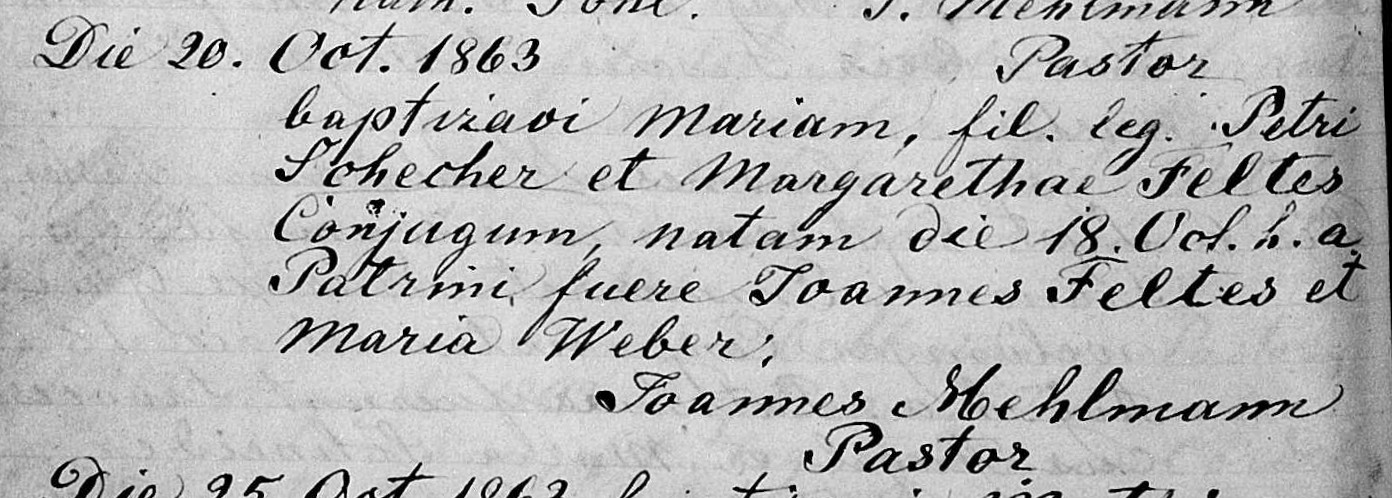 T. Mehlmann
Die 20. Oct. 1863 Pastor
baptizavi Mariam, fil. leg. Petri
Schecher et Margarethae Feltes
Conjugum, natam die 18. Oct. h. a.
Patrini fuere Joannes Feltes et
Maria Weber.
Joannes Mehlmann
Pastor
Die 25 Oct 1863